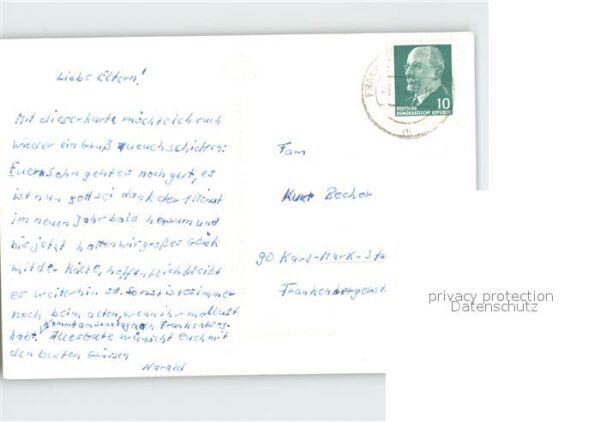 Liebe Eltern!
Mit dieser Karte möchte ich euch
wieder ein Gruß zu euch schicken.
Euern Sohn geht es noch gut, es
ist nun gott sei dank der 1 Monat
im neuen Jahr bald herum und
bis jetzt hatten wir großes Glück
mit der Kälte, hoffentlich bleibt
es weiterhin so. Sonst ist es immer
noch beim alten, wenn ihr mal lust
habt kommt am Sonntag nach Frankenberg.
Alles Gute wünscht euch mit
den besten Grüßen
Harald
FRANK
DEUTSCHE
DEMOKRATISCHE REPUBLIK
10
Fam
Kurt Becher
90 Karl-Marx-Sta
Frankenbergerst
privacy protection
Datenschutz